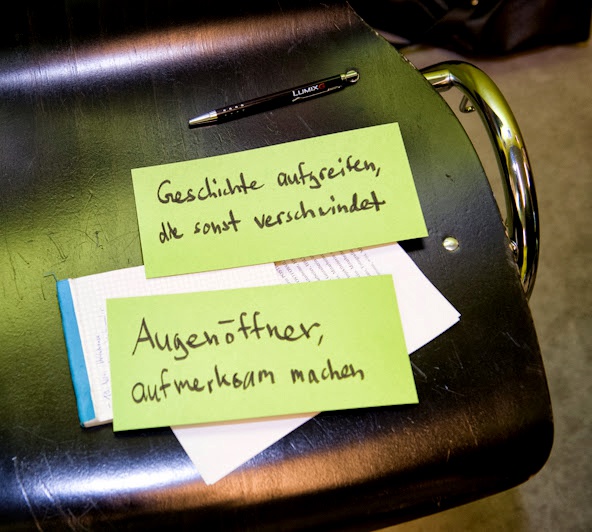 LUMIX G
Geschichte aufgreifen,
die sonst verschwindet
Augenöffner,
aufmerksam machen